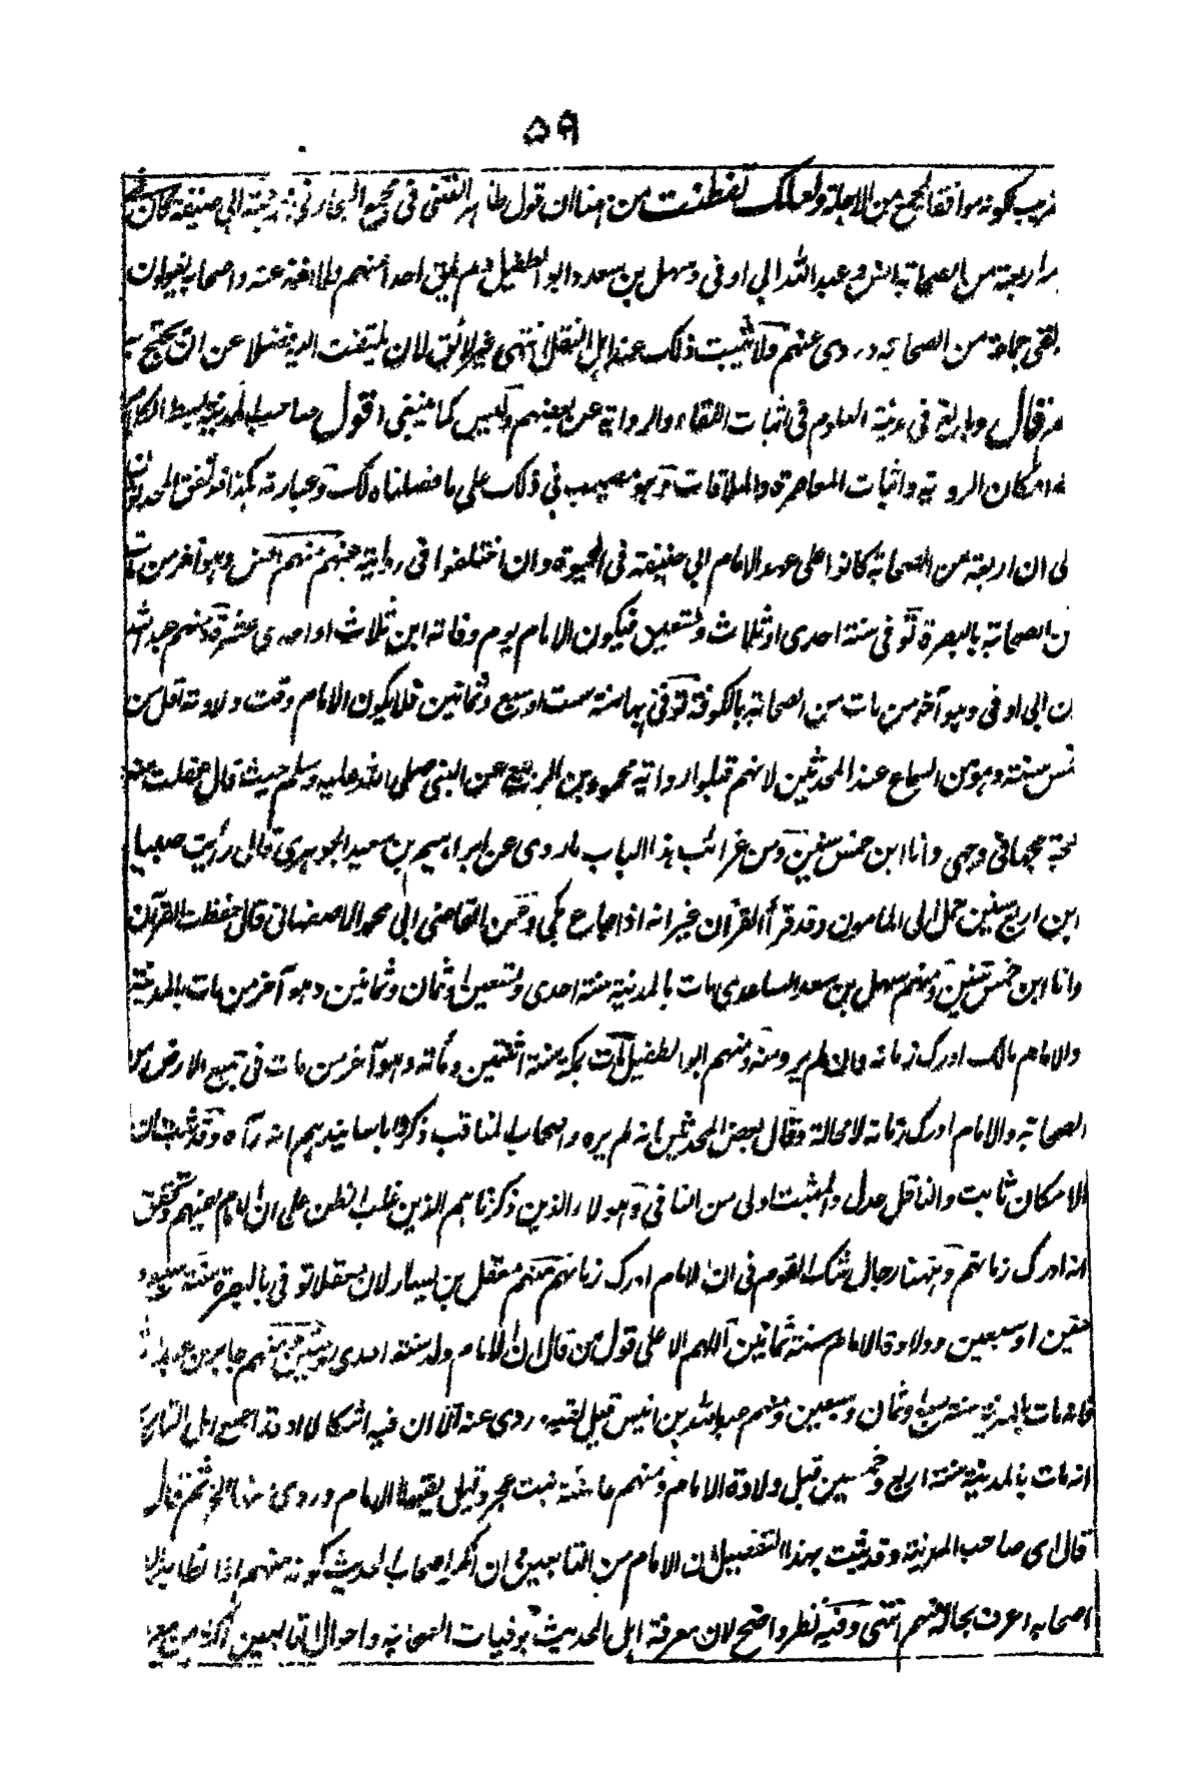 ٥٩
غريب لكونه موافقا لجمع من الاجلة ولعلك تفطنت من ههنا ان قول طاهر الفتنى فى مجمع البحار فى ترجمة ابى حنيفة كان فى
اربعة من الصحابة انس وعبد الله ابى اوفى وسهل بن سعد وابو الطفيل ولم يلق احدا منهم ولا اخذ عنه واصحابه يقولون
لقى جماعة من الصحابة وروى عنهم ولا يثبت ذلك عند اهل النقل انتهى غير لائق لان يلتفت اليه فضلا عن ان يحتج به
قال فى مدينة العلوم فى اثبات اللقاء والرواية عن بعضهم وليس كما ينبغى اقول صاحب المدينة بسط الكلام
امكان الروية واثبات المعاصرة والملاقات وهو مصيب فى ذلك على ما فصلناه لك وعبارته هكذا قد اتفق المحدثون
على ان اربعة من الصحابة كانوا على عهد الامام ابى حنيفة فى الحيوة وان اختلفوا فى روايته عنهم منهم انس وهو آخر من مات
من الصحابة بالبصرة توفى سنة احدى او ثلاث وتسعين فيكون الامام يوم وفاته ابن ثلاث او احدى عشرة ومنهم عبد الله
بن ابى اوفى وهو آخر من مات من الصحابة بالكوفة توفى بها سنة ست او سبع وثمانين فلا يكون الامام وقت ولادته اقل من
خمس سنة وهو من السماع عند المحدثين لانهم قبلوا رواية محمود بن الربيع عن النبى صلى الله عليه وسلم حيث قال عقلت منه
مجة مجها فى وجهى وانا ابن خمس سنين ومن غرائب هذا الباب ما روى عن ابراهيم بن سعيد الجوهرى قال رأيت صبيا
ابن اربع سنين حمل الى المامون وقد قرأ القرآن غير انه اذا جاع بكى وعن القاضى ابى محمد الاصفهانى قال حفظت القرآن
وانا ابن خمس سنين ومنهم سهل بن سعد الساعدى مات بالمدينة سنة احدى وتسعين او ثمان وثمانين وهو آخر من مات بالمدينة
والامام مالك ادرك زمانه وان لم يرو منه ومنهم ابو الطفيل مات بمكة سنة اثنتين ومائة وهو آخر من مات فى جميع الارض من
الصحابة والامام ادرك زمانه لا محالة وقال بعض المحدثين انه لم يره واصحاب المناقب ذكروا باسانيدهم انه رآه وقد ثبت ان
الامكان ثابت والناقل عدل والمثبت اولى من النافى وهولاء الذين ذكرناهم الذين غلب الظن على ان الامام لقيهم وتحقق
انه ادرك زمانهم وههنا رجال شك القوم فى ان الامام ادرك زمانهم منهم معقل بن يسار لان معقلا توفى بالبصرة سنة
ستين او سبعين وولادة الامام سنة ثمانين اللهم الا على قول من قال ان الامام ولد سنة احدى وستين ومنهم جابر بن عبد الله
فانه مات بالمدينة سنة سبع او ثمان وسبعين ومنهم عبد الله بن انيس قيل لقيه وروى عنه الا ان فيه اشكالا اذ قد اجمع اهل التاريخ
انه مات بالمدينة سنة اربع وخمسين قبل ولادة الامام ومنهم عائشة بنت عجرد قيل لقيها الامام وروى عنها الخ ثم قال
قال اى صاحب المدينة وقد ثبت بهذا التفصيل ان الامام من التابعين وان انكر اصحاب الحديث كونه منهم اذا الظاهر ان
اصحابه اعرف بحاله منهم انتهى وفيه نظر واضح لان معرفة اهل الحديث بوفيات الصحابة واحوال التابعين اكثر من معرفة